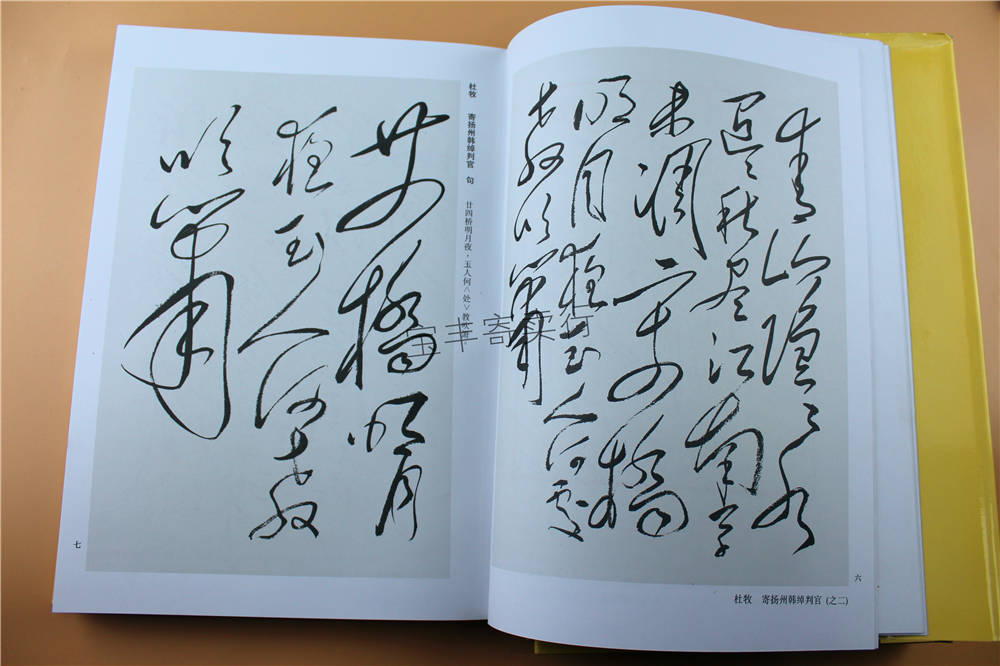 青山隱々水
迢々秋盡江南草
未凋二十四橋
明月夜玉人何處
教吹簫
六
杜牧 寄扬州韩绰判官(之二)
杜牧 寄扬州韩绰判官 句 廿四桥明月夜，玉人何<处>教吹箫
廿四橋明月
夜玉人何教
吹簫
七
宝丰寄